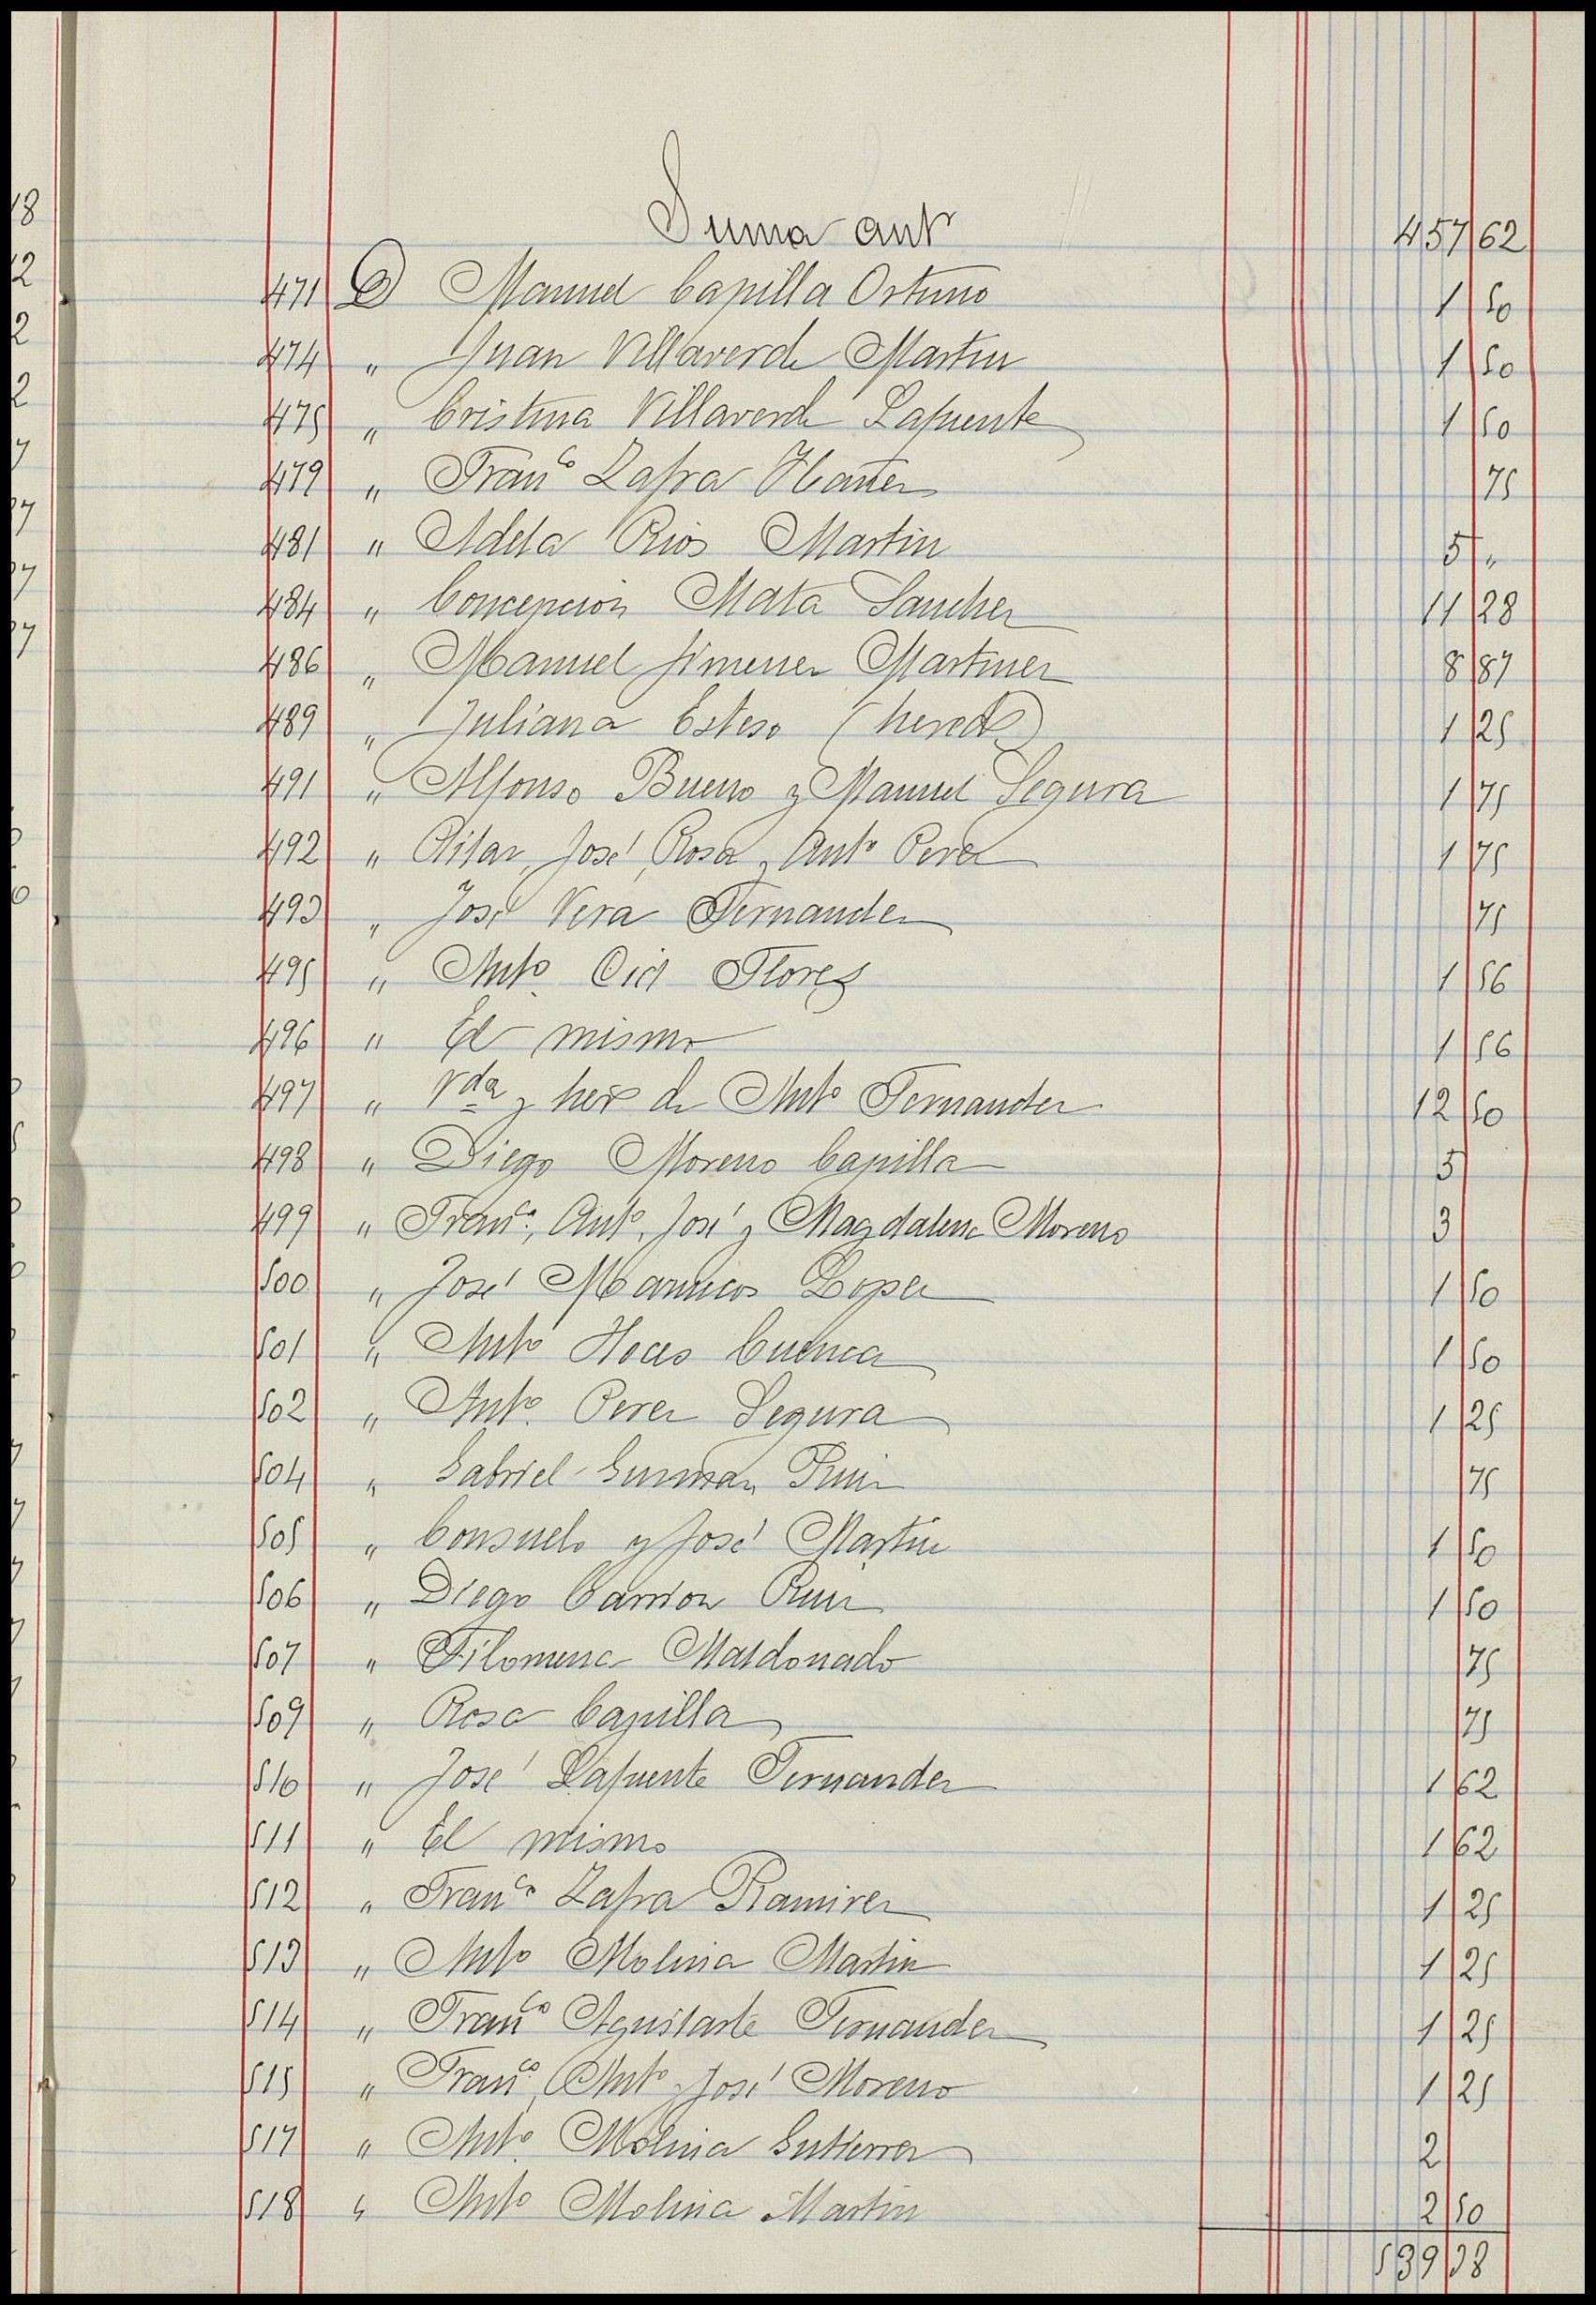 Suma antr 457 62
471 D Manuel Capilla Ortuno 1 50
474 " Juan Villaverde Martin 1 50
475 " Cristina Villaverde Lapuente 1 50
479 " Franco Zafra Ibañez 75
481 " Adela Rios Martin 5 "
484 " Concepcion Mata Sanchez 11 28
486 " Manuel Jimenez Martinez 8 87
489 " Juliana Esteso (hereds) 1 25
491 " Alfonso Bueno y Manuel Segura 1 75
492 " Pilar, José, Rosa y Anto Perez 1 75
493 " José Vera Fernandez 75
495 " Anto Cid Flores 1 56
496 " El mismo 1 56
497 " Vda y hers de Anto Fernandez 12 50
498 " Diego Moreno Capilla 5
499 " Franco, Anto, José y Magdalena Moreno 3
500 " José Lopez 1 50
501 " Anto Hoces Cuenca 1 50
502 " Anto Perez Segura 1 25
504 " Gabriel Guzman Ruiz 75
505 " Consuelo y José Martin 1 50
506 " Diego Carrion Ruiz 1 50
507 " Filomena Maldonado 75
509 " Rosa Capilla 75
510 " José Lapuente Fernandez 1 62
511 " El mismo 1 62
512 " Franco Zafra Ramirez 1 25
513 " Anto Molina Martin 1 25
514 " Franco Aguilarte Fernandez 1 25
515 " Franco, Anto y José Moreno 1 25
517 " Anto Molina Gutierrez 2
518 " Anto Molina Martin 2 50
539 38